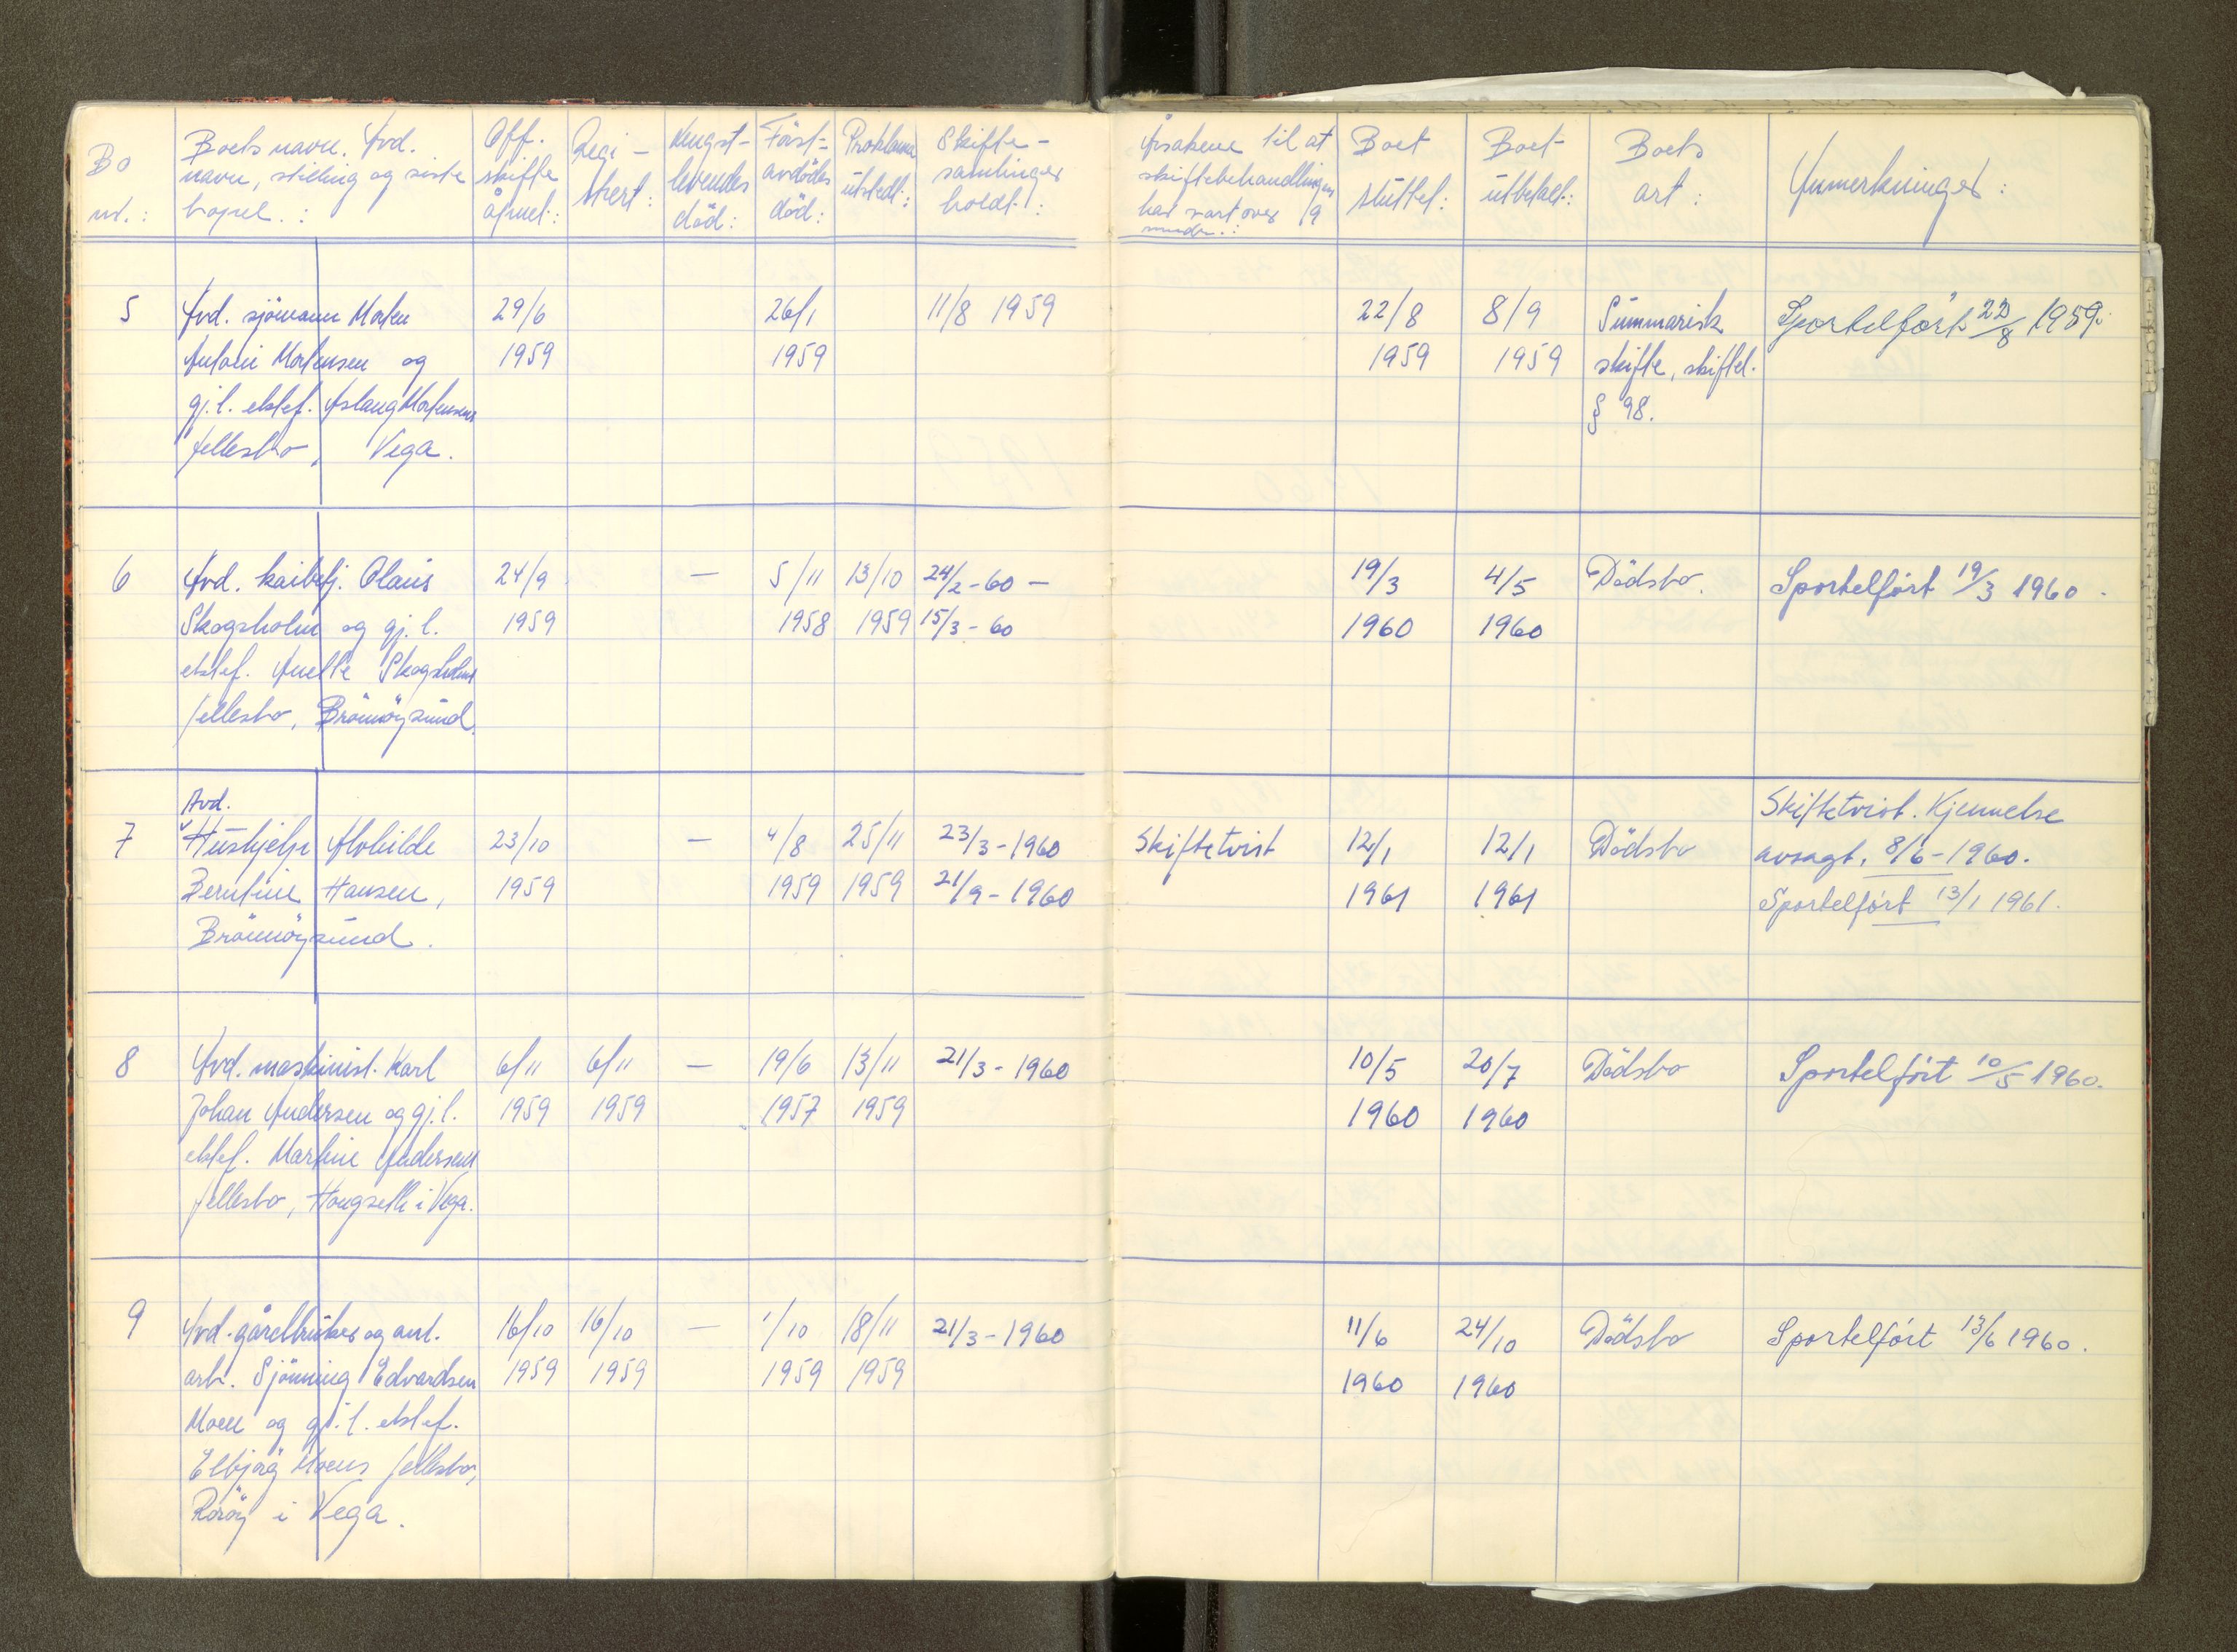 Bo
nr.:
Boets navn. Avd.
navn, stilling og siste
bopel. :
Off.
skifte
åpnet:
Regi-
strert:
Lengst-
levendes
död:
Först-
avdödes
död:
Proklama
utstedt:
Skifte-
samlinger
holdt:
Årsakene til at
skiftebehandlingen
har vart over 9
mndr.:
Boet
sluttet:
Boet
utbetalt:
Boets
art:
Anmerkninger:
5
Avd. sjömann Morten
Antoni Mortensen og
gj.l. ektef. Aslaug Mortensens
fellesbo, Vega.
29/6
1959
26/1
1959
11/8 1959
22/8
1959
8/9
1959
Summarisk
skifte, skiftel.
§ 98.
Sportelfört 22/8 1959.
6
Avd. kaibetj. Olaus
Skogsholm og gj.l.
ektef. Anette Skogsholms
fellesbo, Brönnöysund.
24/9
1959
—
5/11
1958
13/10
1959
24/2-60 —
15/3-60
19/3
1960
4/5
1960
Dödsbo.
Sportelfört 19/3 1960.
7
Avd.
Hushjelp Alvhilde
Berntine Hansen,
Brönnöysund.
23/10
1959
—
4/8
1959
25/11
1959
23/3-1960
21/9-1960
Skiftetvist
12/1
1961
12/1
1961
Dödsbo
Skiftetvist. Kjennelse
avsagt. 8/6-1960.
Sportelfört 13/1 1961.
8
Avd. maskinist. Karl
Johan Andersen og gj.l.
ektef. Martine Andersens
fellesbo, Hongseth i Vega.
6/11
1959
6/11
1959
—
19/6
1957
13/11
1959
21/3-1960
10/5
1960
20/7
1960
Dödsbo
Sportelfört 10/5 1960.
9
Avd. gårdbruker og anl.
arb. Sjönning Edvardsen
Moen og gj.l. ektef.
Elbjörg Moens fellesbo,
Röröy i Vega.
16/10
1959
16/10
1959
—
1/10
1959
18/11
1959
21/3-1960
11/6
1960
24/10
1960
Dödsbo
Sportelfört 13/6 1960.